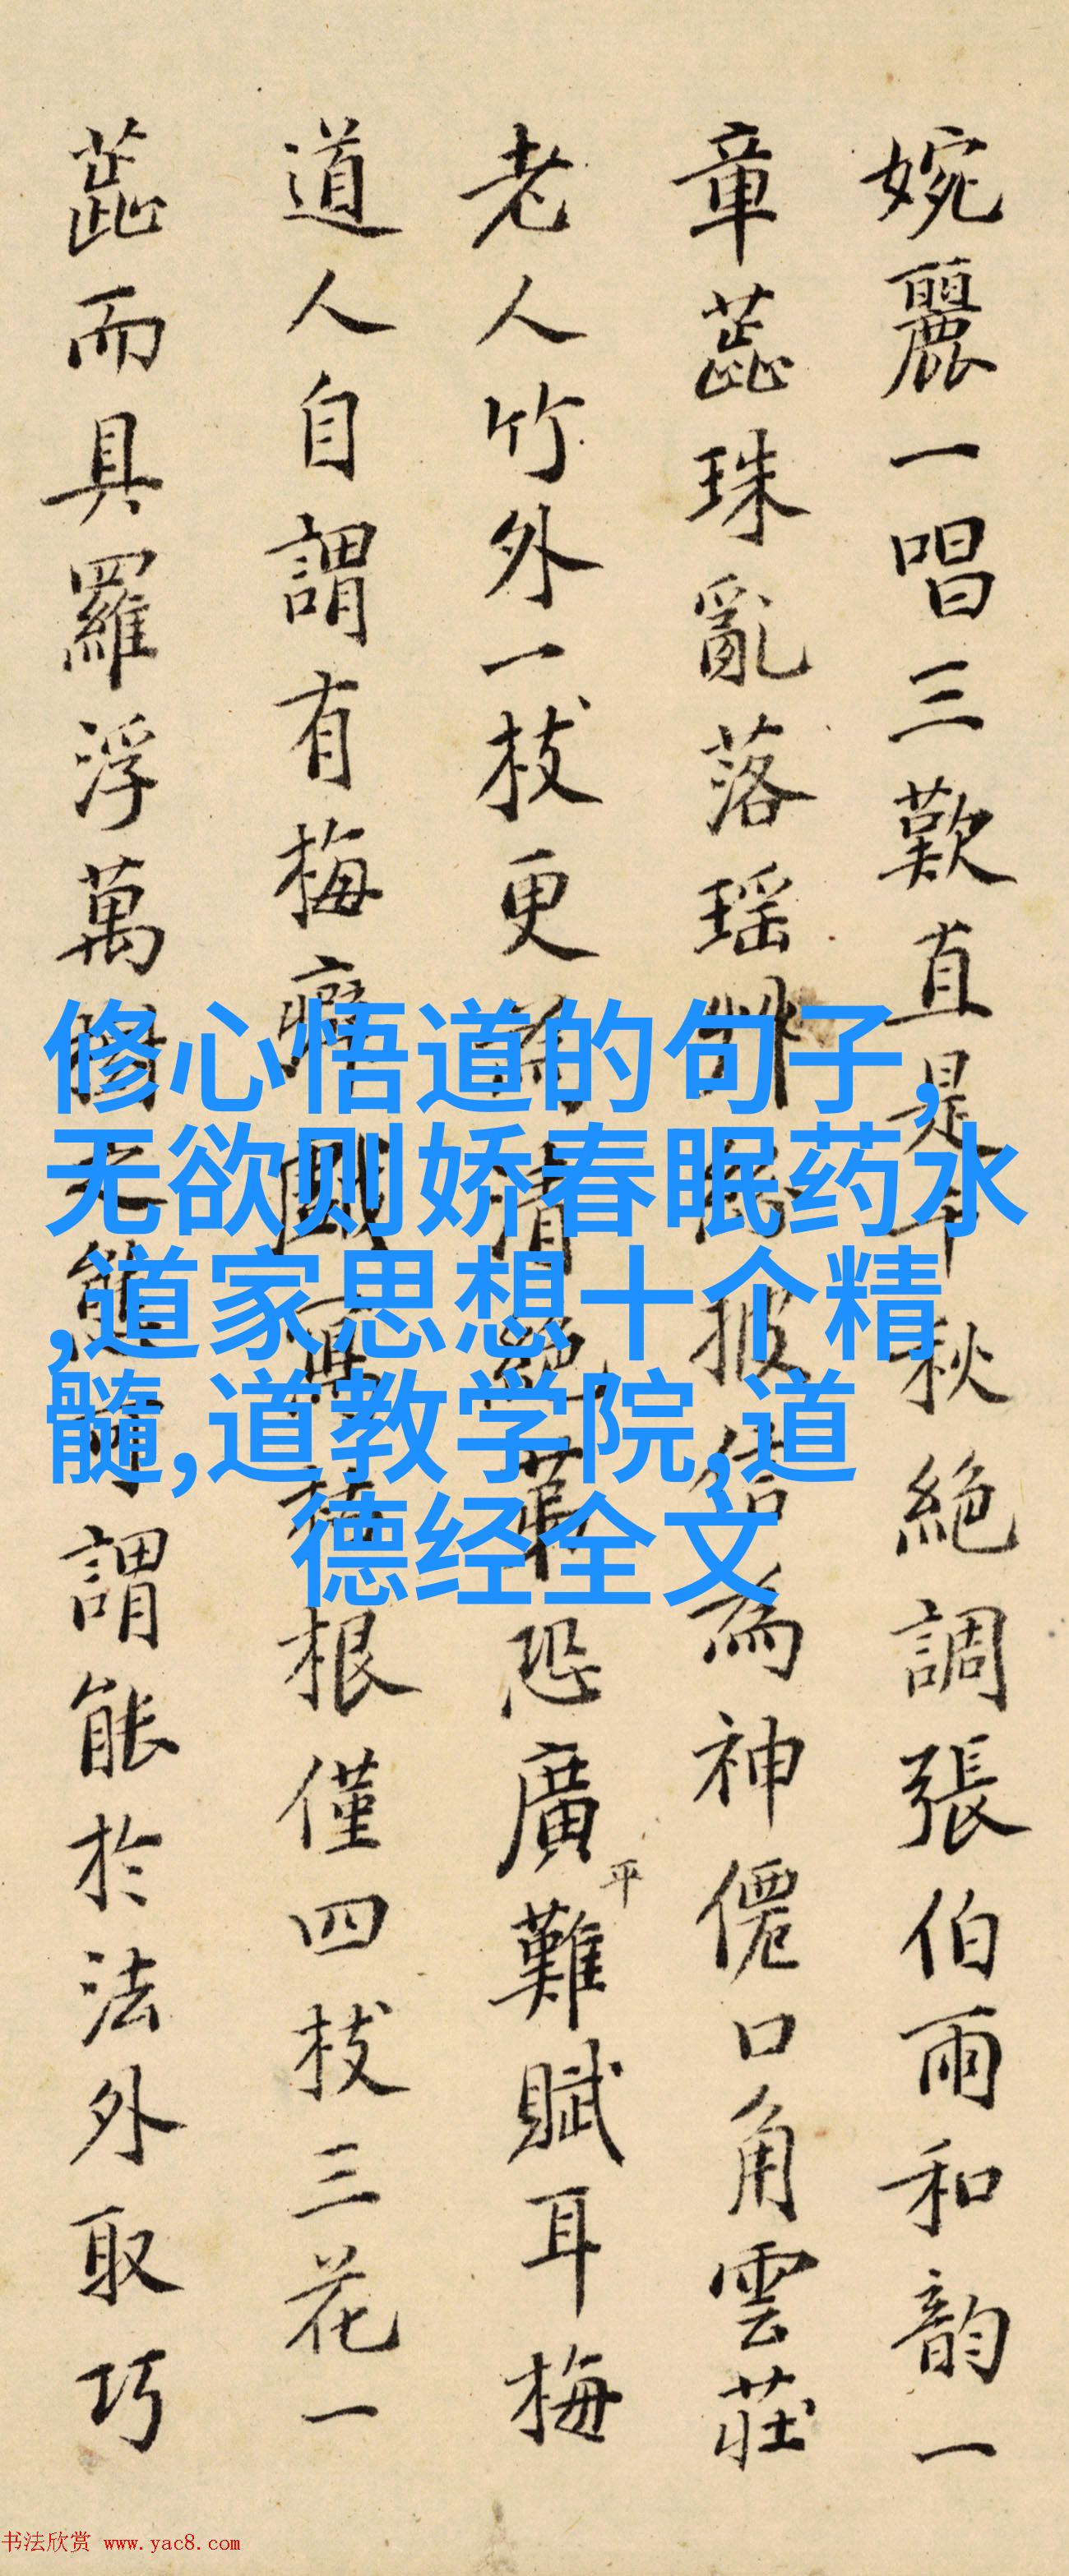 婉麗一唱三歎直是千秋絕調張伯雨和韵一
章蕋珠亂落瑶披信為神僊口角雲莊
老人竹外一枝更為清絕恐廣平難賦耳梅
道人自謂有梅癖根僅四枝三花一
蕋而具羅浮萬態可謂能於法外取巧
修心悟道的句子,
无欲则娇春眠药水
,道家思想十个精
髓,道教学院,道
德经全文
书法欣赏 www.yac8.com